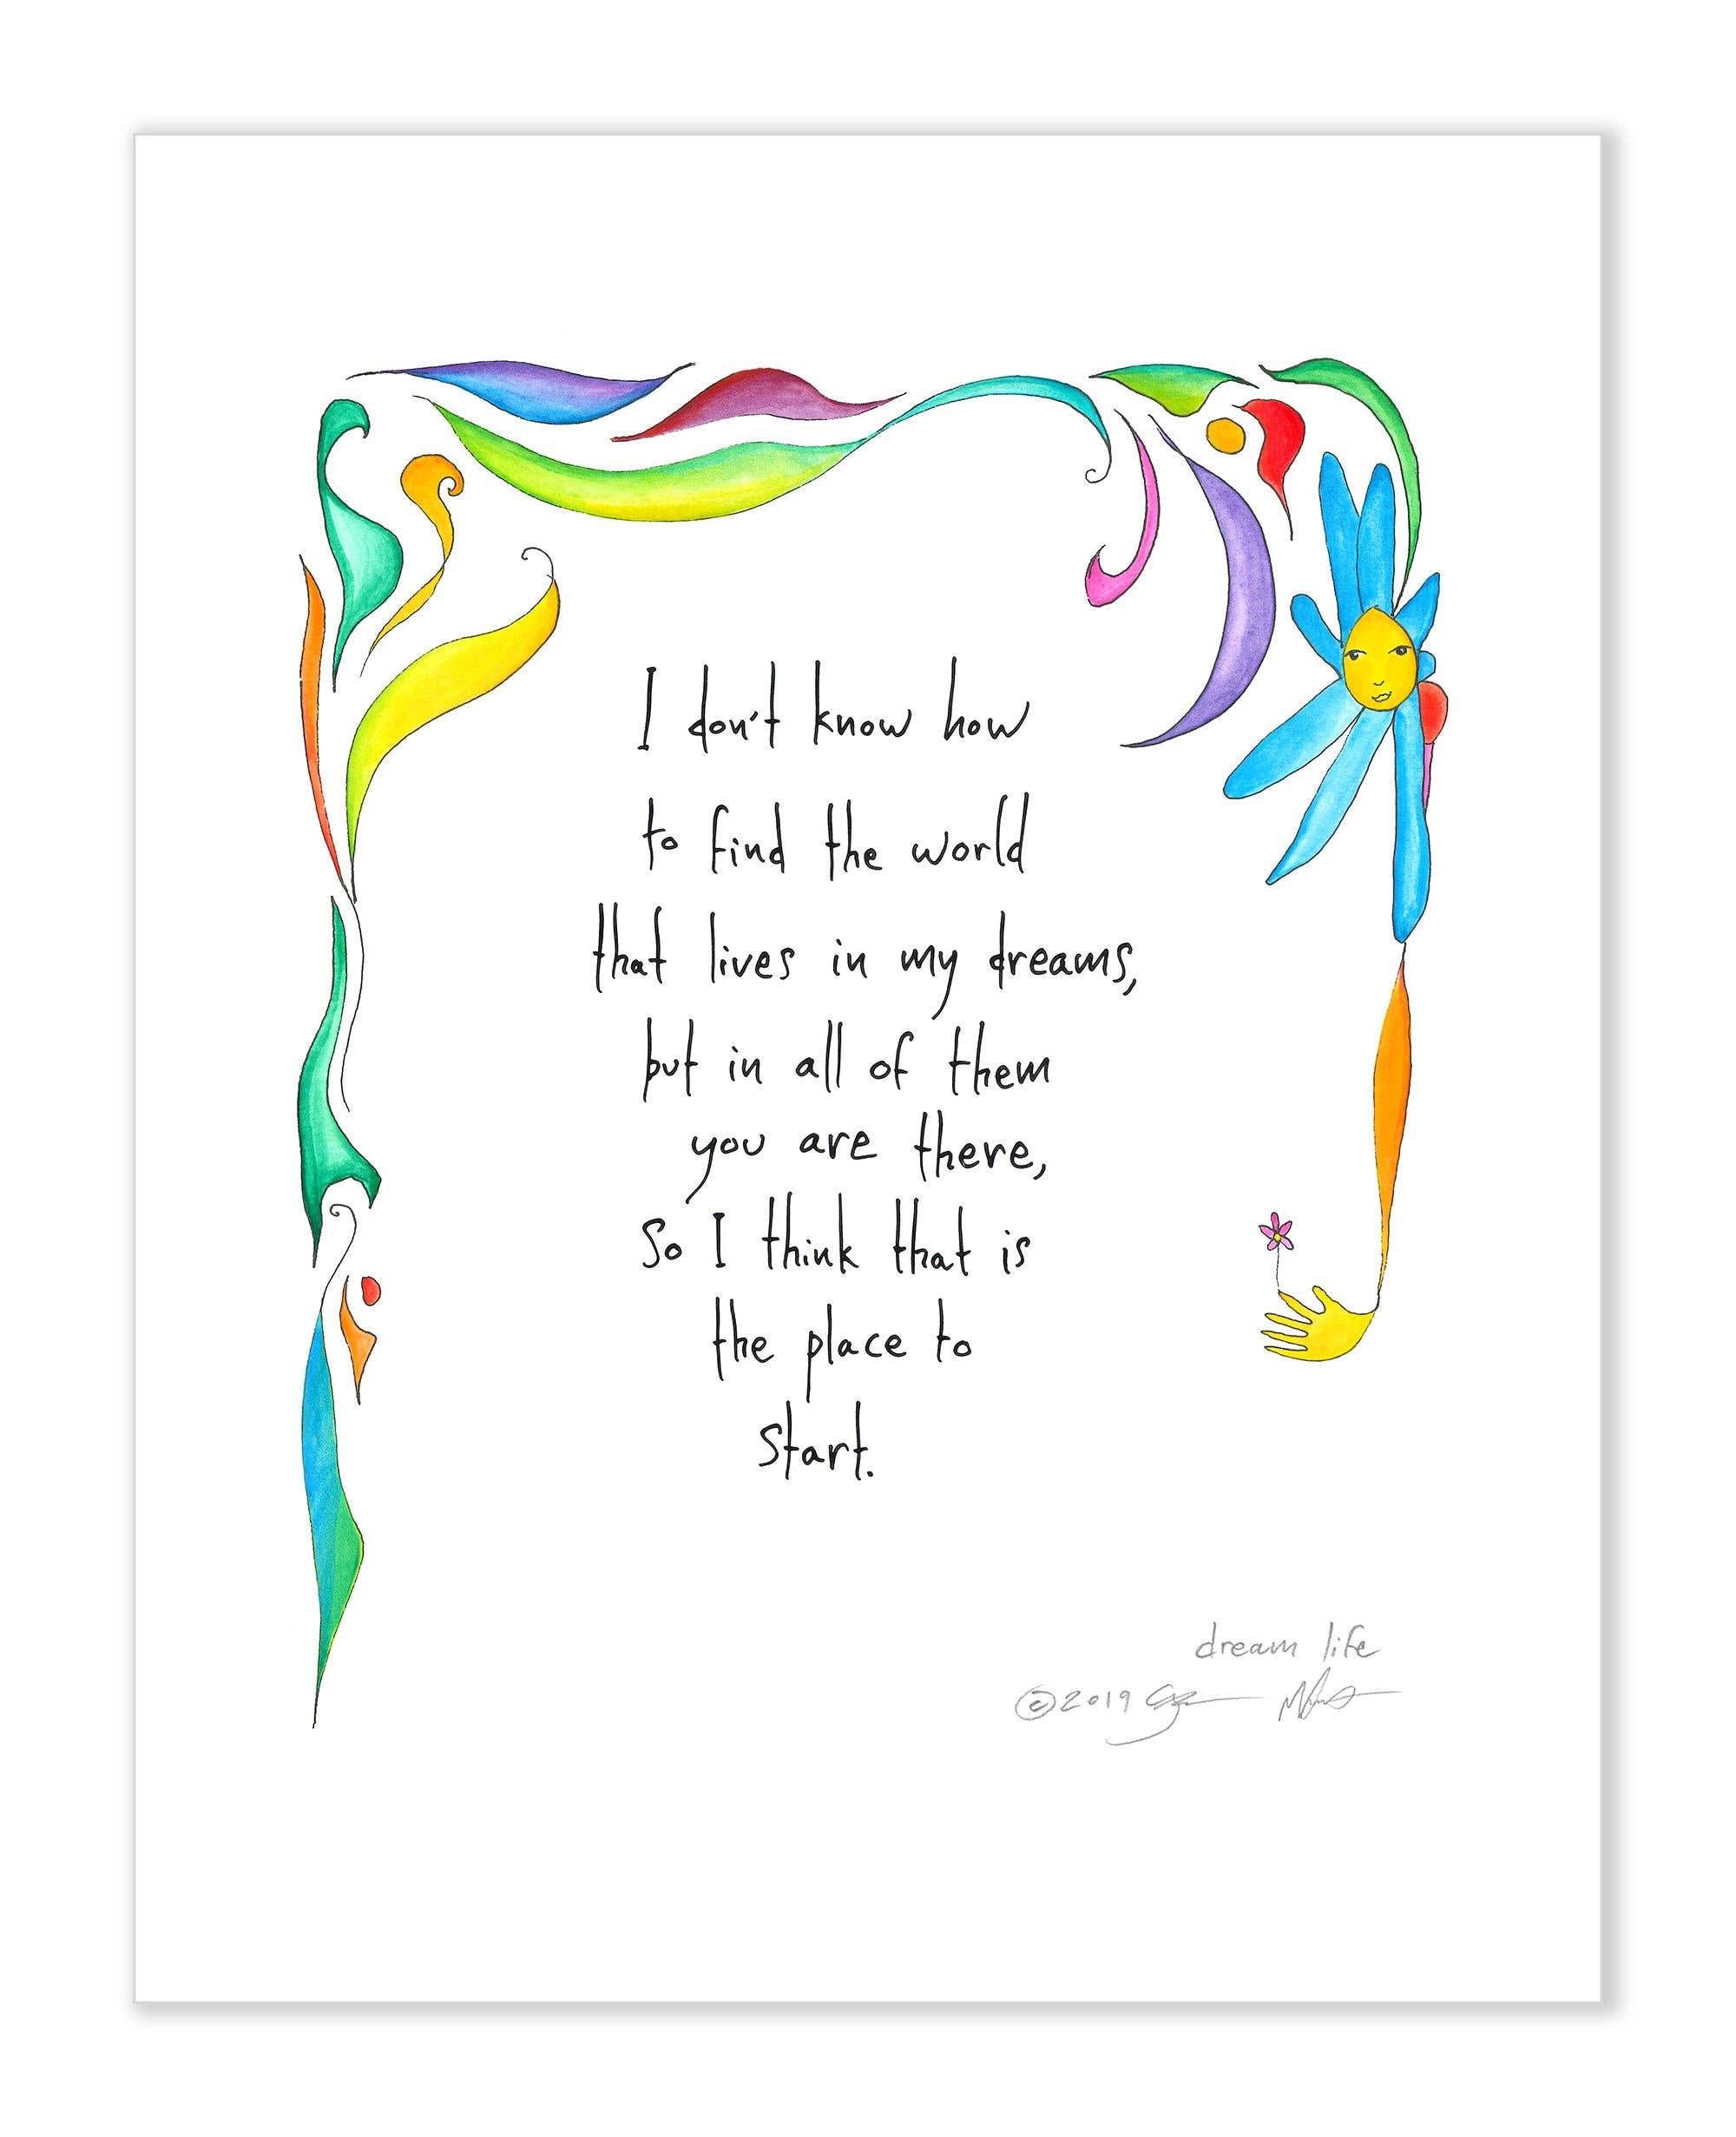 I don't know how
to find the world
that lives in my dreams,
but in all of them
you are there,
So I think that is
the place to
start.
dream life
©2019